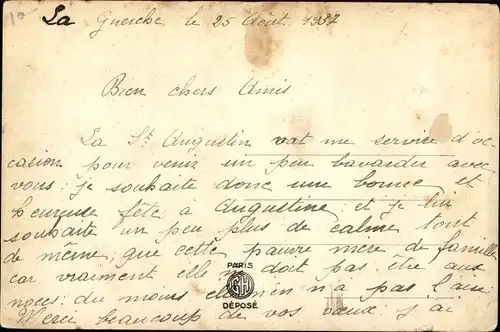 La Guerche le 25 Août 1937
Bien chers Amis
La St Augustin vat me servire d'oc-
casion pour venir un peu bavarder avec
vous : je souhaite donc une bonne et
heureuse fête à Augustine : et je lui
souhaite un peu plus de calme tout
de même, que cette pauvre mère de famille
car vraiment elle doit pas être aus
noces : du moins n'a pas l'air
Merci beaucoup de vos vœux : j'ai
PARIS
DÉPOSÉ